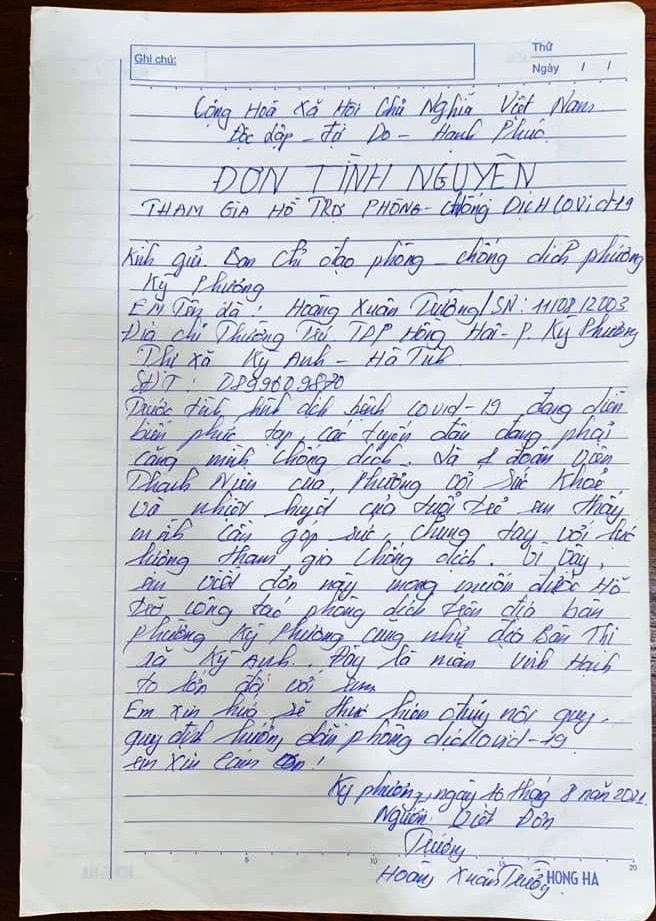 Ghi chú:
Thứ
Ngày / /
Cộng Hoà Xã Hội Chủ Nghĩa Việt Nam
Độc lập - Tự Do - Hạnh Phúc
ĐƠN TÌNH NGUYỆN
THAM GIA HỖ TRỢ PHÒNG - Chống DỊCH COVID-19
Kính gửi. Ban Chỉ đạo phòng - chống dịch phường
Kỳ Phương
Em Tên là: Hoàng Xuân Trường / SN: 11/08/2003
Địa chỉ Thường Trú TDP Hồng Hải - P. Kỳ Phương
Thị xã Kỳ Anh - Hà Tĩnh
SĐT: 0899609820
Trước tình hình dịch bệnh covid-19 đang diễn
biến phức tạp, các tuyến đầu đang phải
căng mình chống dịch. Là 1 đoàn viên
Thanh Niên của Phường với sức khoẻ
và nhiệt huyết của tuổi trẻ em thấy
mình cần góp sức, chung tay với lực
lượng tham gia chống dịch. Vì vậy,
em viết đơn này mong muốn được Hỗ
trợ công tác phòng dịch trên địa bàn
phường Kỳ Phương cũng như địa Bàn Thị
xã Kỳ Anh. Đây là niềm Vinh Hạnh
to lớn đối với em
Em xin hứa sẽ thực hiện đúng nội quy,
quy định hướng dẫn phòng dịch Covid-19
em xin cảm ơn!
Kỳ phương, ngày 16 tháng 8 năm 2021
Người Viết Đơn
Trường
Hoàng Xuân Trường
HONG HA
5 10 15 20